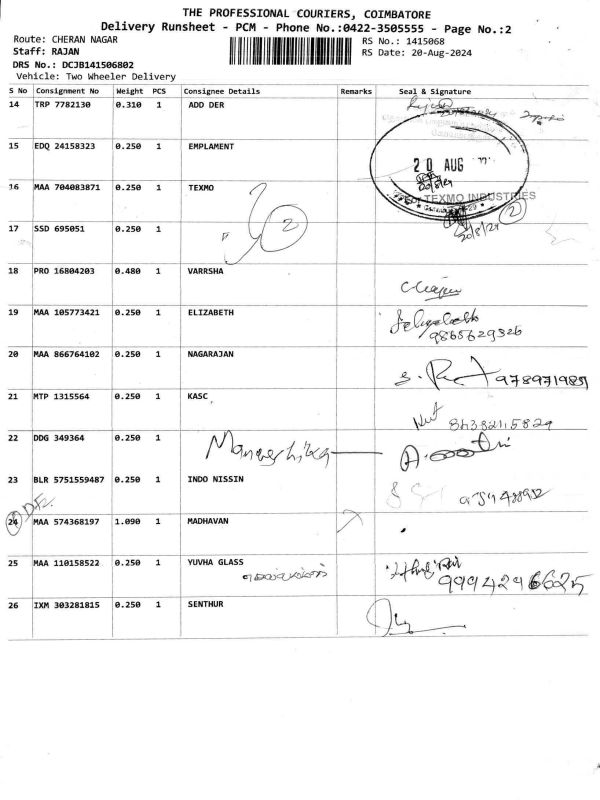 THE PROFESSIONAL COURIERS, COIMBATORE
Delivery Runsheet - PCM - Phone No.:0422-3505555 - Page No.:2
Route: CHERAN NAGAR
RS No.: 1415068
Staff: RAJAN
RS Date: 20-Aug-2024
DRS No.: DCJB141506802
Vehicle: Two Wheeler Delivery
S No Consignment No Weight PCS Consignee Details Remarks Seal & Signature
14 TRP 7782130 0.310 1 ADD DER
15 EDQ 24158323 0.250 1 EMPLAMENT
20 AUG
20/8/24
16 MAA 704083871 0.250 1 TEXMO
TEXMO INDUSTRIES
2 2
17 SSD 695051 0.250 1
20/8/24
18 PRO 16804203 0.480 1 VARRSHA
19 MAA 105773421 0.250 1 ELIZABETH
9865629326
20 MAA 866764102 0.250 1 NAGARAJAN
21 MTP 1315564 0.250 1 KASC
22 DDG 349364 0.250 1
23 BLR 5751559487 0.250 1 INDO NISSIN
24 MAA 574368197 1.090 1 MADHAVAN
25 MAA 110158522 0.250 1 YUVHA GLASS
9994296625
26 IXM 303281815 0.250 1 SENTHUR